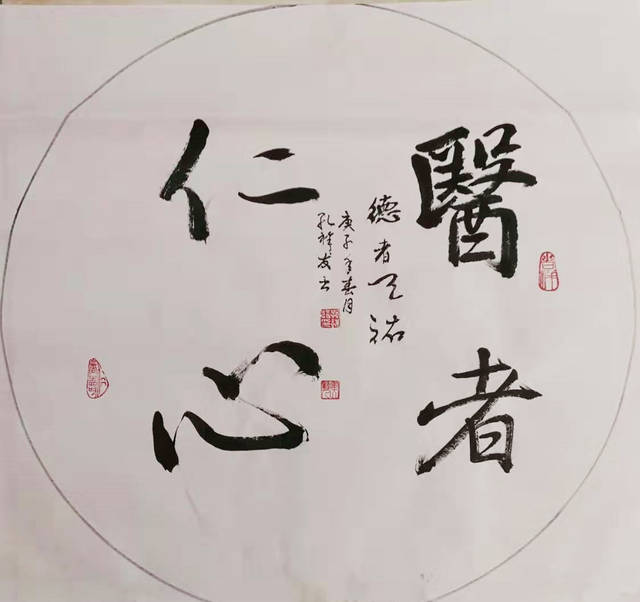 醫者
仁心
德者天祐
庚子年春月
孔祥友书